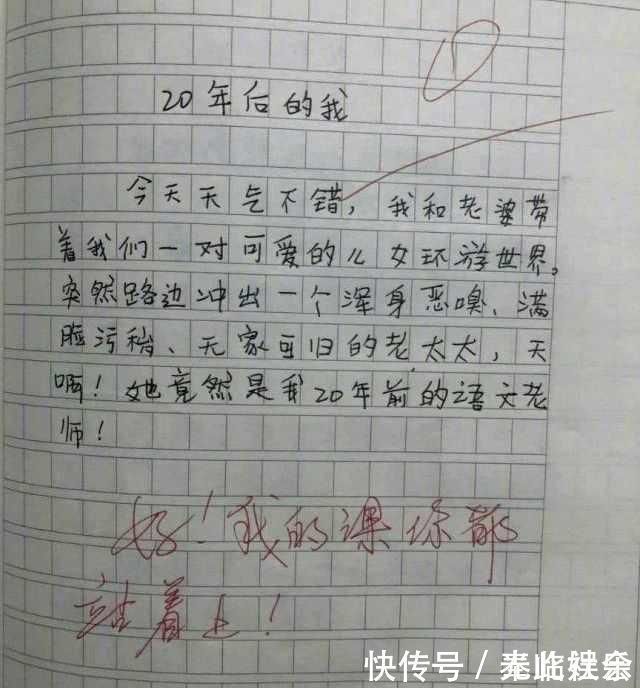 20年后的我
今天天气不错，我和老婆带
着我们一对可爱的儿女环游世界。
突然路边冲出一个浑身恶嗅、满
脸污秽、无家可归的老太太，天
啊！她竟然是我20年前的语文老
师！
好！我的课你都
站着上！
快传号／秦临娱乐